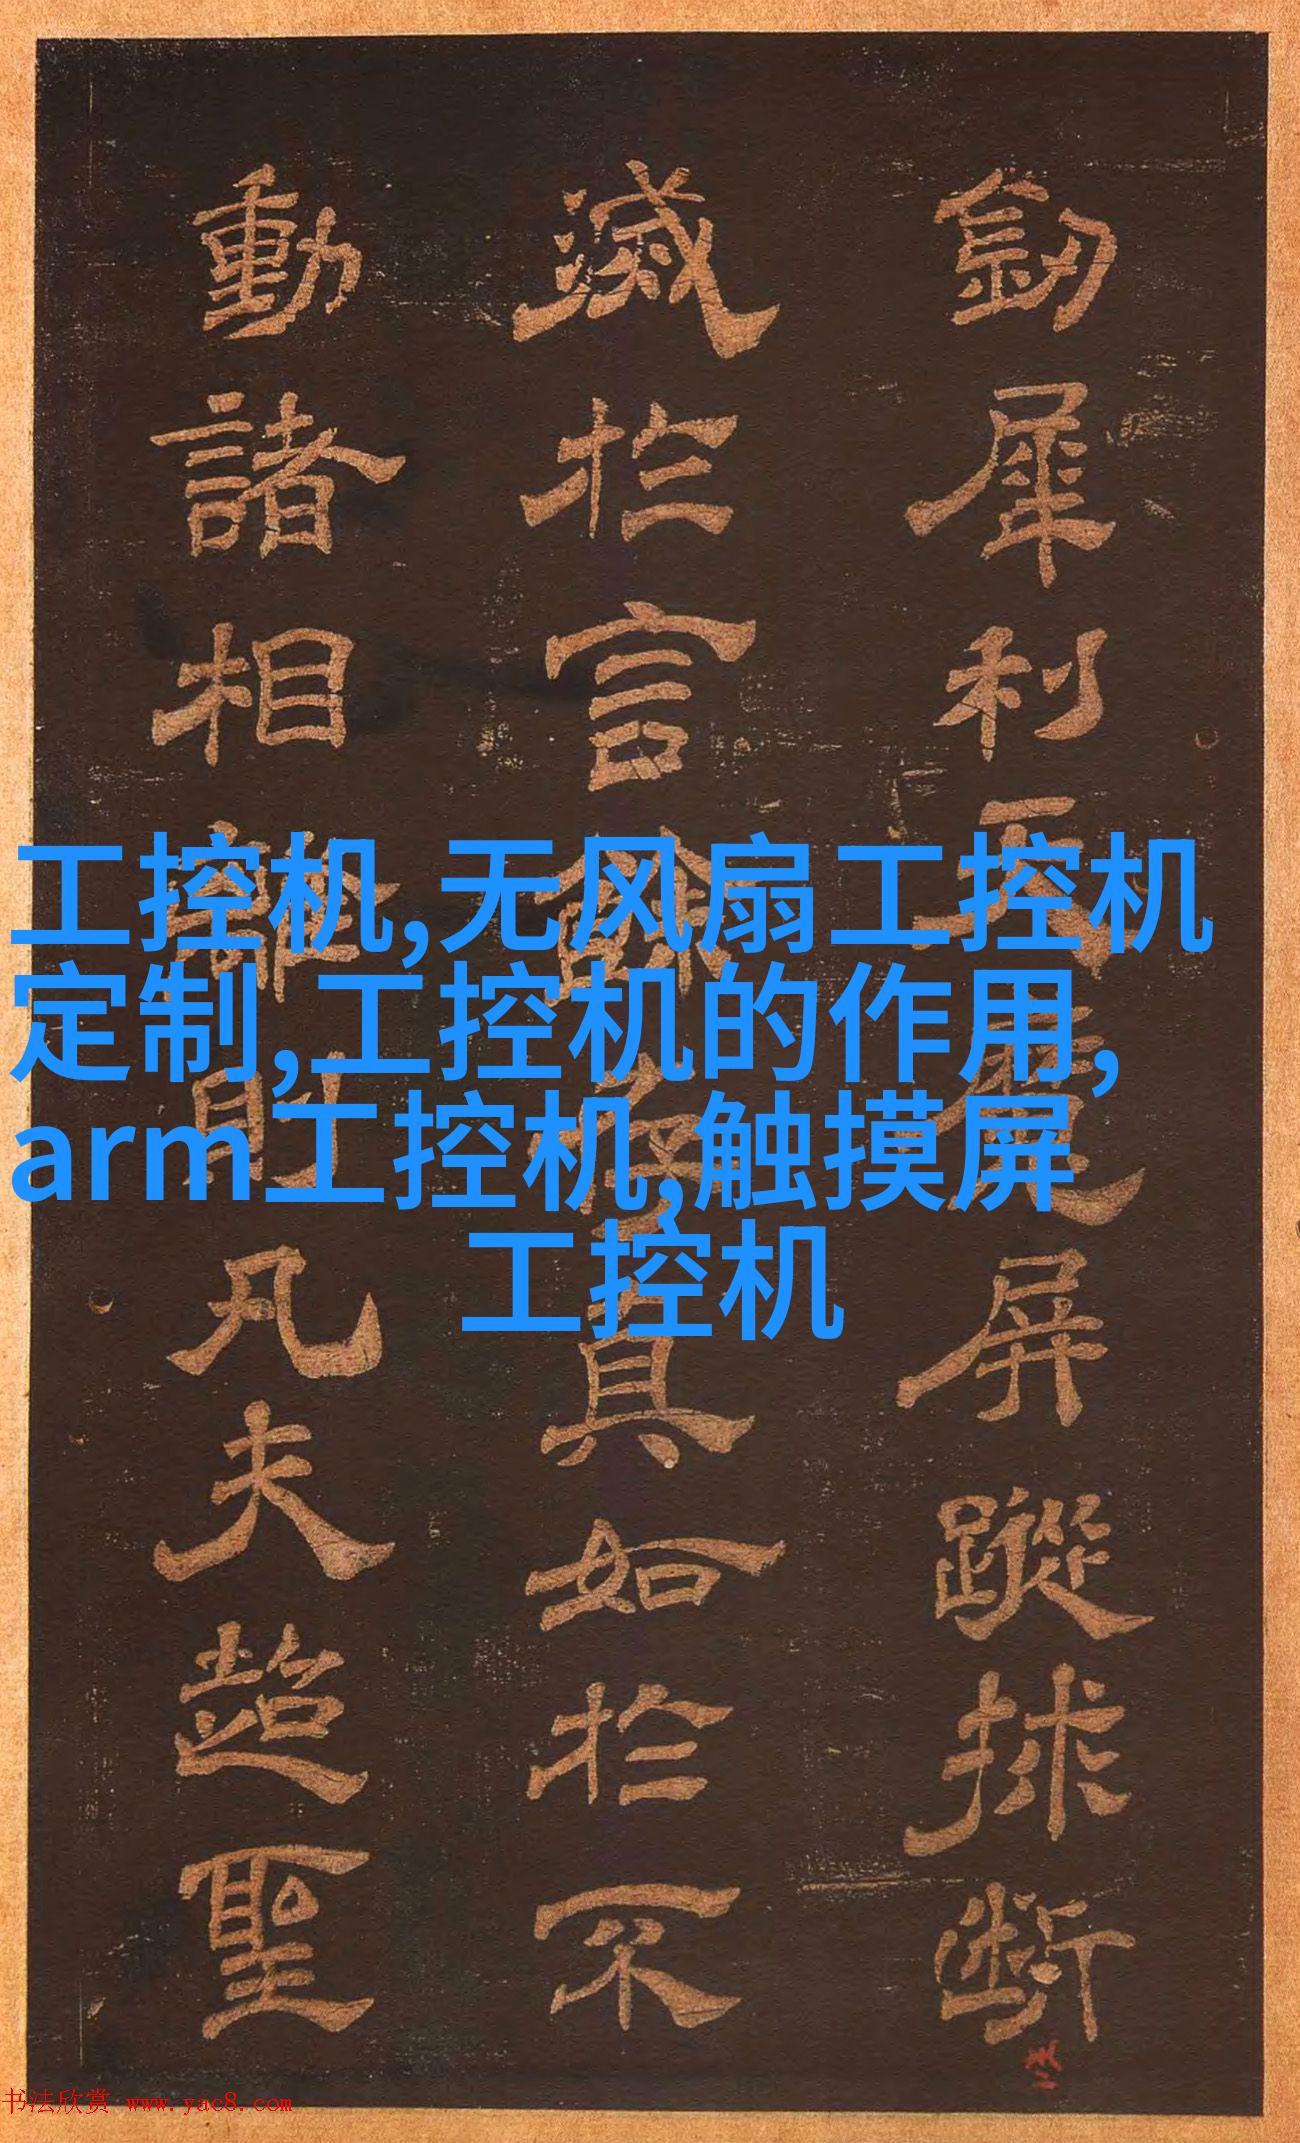 犀利
屏蹤
斷
滅於言
真如於不
動諸相
凡夫超聖
工控机,无风扇工控机
定制,工控机的作用,
arm工控机,触摸屏
工控机
书法欣赏 www.yac8.com